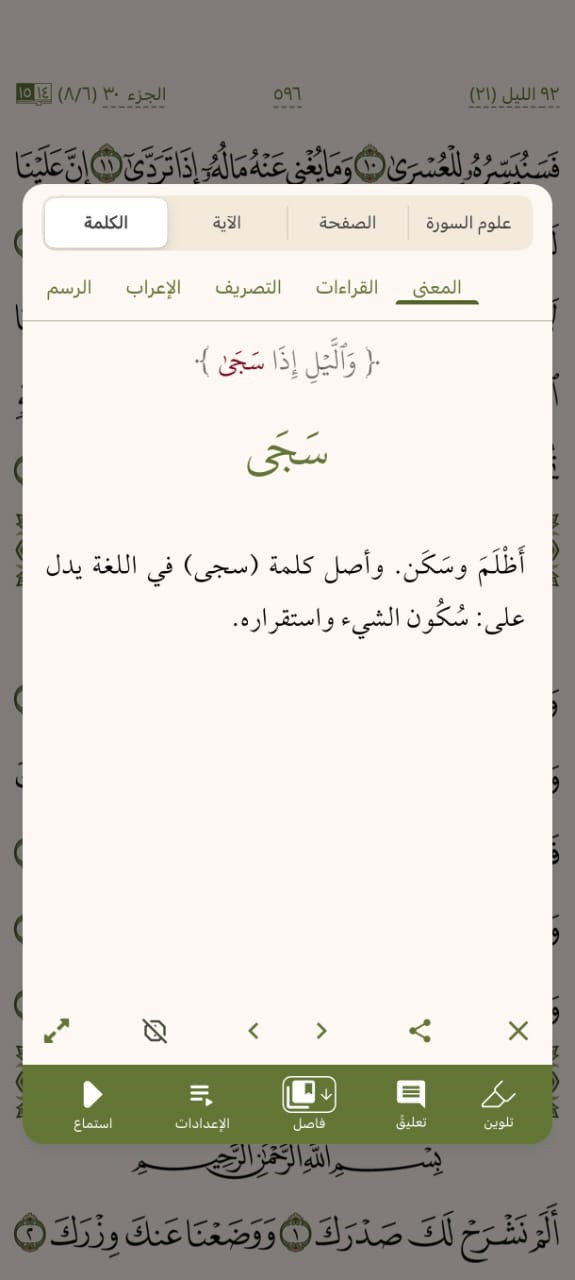 ٩٢ الليل (٢١) ٥٩٦ الجزء ٣٠ (٨/٦) ١٤ ١٥
فَسَنُيَسِّرُهُۥ لِلْعُسْرَىٰ ١٠ وَمَا يُغْنِى عَنْهُ مَالُهُۥٓ إِذَا تَرَدَّىٰٓ ١١ إِنَّ عَلَيْنَا
علوم السورة الصفحة الآية الكلمة
المعنى القراءات التصريف الإعراب الرسم
﴿ وَٱلَّيْلِ إِذَا سَجَىٰ ﴾
سَجَى
أَظْلَمَ وسَكَن. وأصل كلمة (سجى) في اللغة يدل
على: سُكُون الشيء واستقراره.
تلوين تعليق فاصل الإعدادات استماع
بِسْمِ ٱللَّهِ ٱلرَّحْمَٰنِ ٱلرَّحِيمِ
أَلَمْ نَشْرَحْ لَكَ صَدْرَكَ ١ وَوَضَعْنَا عَنكَ وِزْرَكَ ٢